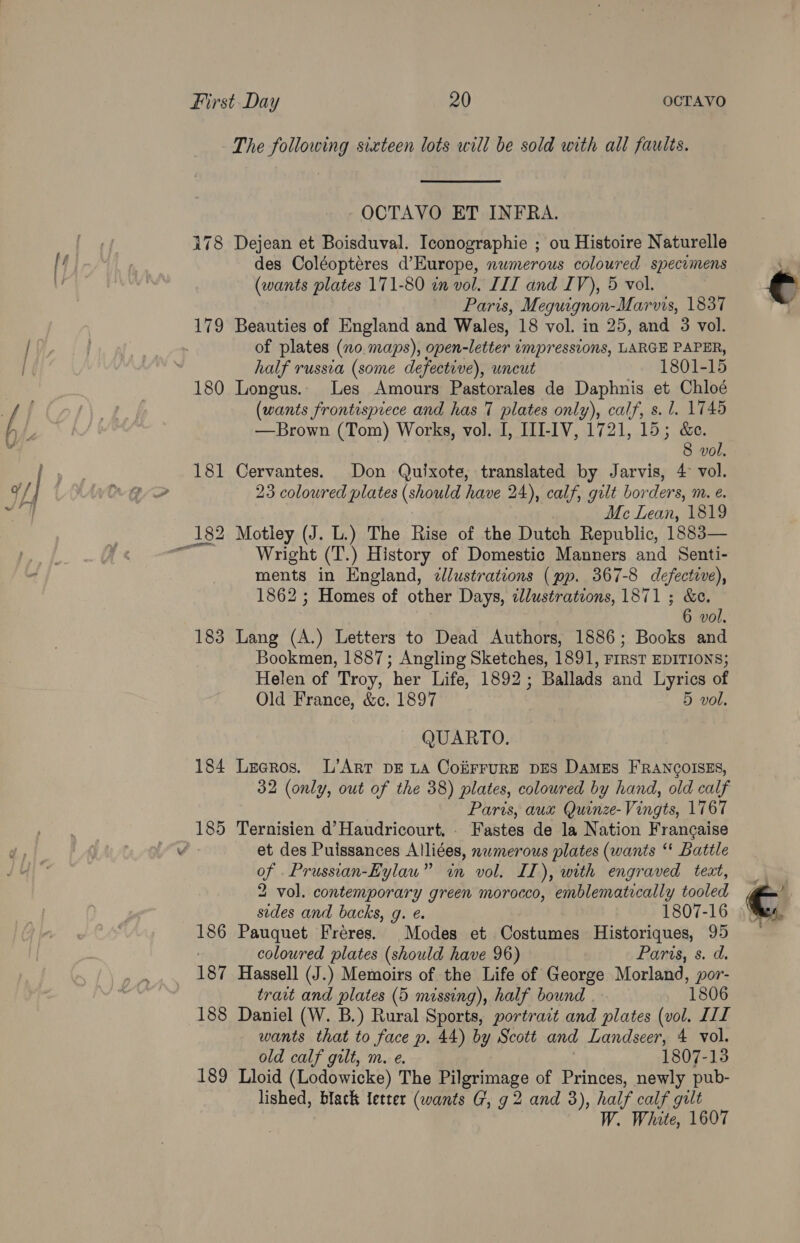 First Day 20 OCTAVO
The following sixteen lots will be sold with all faults.
OCTAVO ET INFRA.
178 Dejean et Boisduval. Iconographie ; ou Histoire Naturelle
des Coléoptères d'Europe, numerous coloured specimens
(wants plates 171-80 in vol. III and IV), 5 vol.
Paris, Meguignon-Marvis, 1837
179 Beauties of England and Wales, 18 vol. in 25, and 3 vol.
of plates (no maps), open-letter impressions, LARGE PAPER,
half russia (some defective), uncut 1801-15
180 Longus. Les Amours Pastorales de Daphnis et Chloé
(wants frontispiece and has 7 plates only), calf, s. l. 1745
—Brown (Tom) Works, vol. I, III-IV, 1721, 15; &c.
8 vol.
181 Cervantes. Don Quixote, translated by Jarvis, 4 vol.
23 coloured plates (should have 24), calf, gilt borders, m. e.
Mc Lean, 1819
182 Motley (J. L.) The Rise of the Dutch Republic, 1883—
Wright (T.) History of Domestic Manners and Senti-
ments in England, illustrations (pp. 367-8 defective),
1862 ; Homes of other Days, illustrations, 1871 ; &c.
6 vol.
183 Lang (A.) Letters to Dead Authors, 1886; Books and
Bookmen, 1887; Angling Sketches, 1891, FIRST EDITIONS;
Helen of Troy, her Life, 1892; Ballads and Lyrics of
Old France, &c. 1897 5 vol.
QUARTO.
184 LEGROS. L'ART DE LA COËFFURE DES DAMES FRANÇOISES,
32 (only, out of the 38) plates, coloured by hand, old calf
Paris, aux Quinze-Vingts, 1767
185 Ternisien d'Haudricourt. Fastes de la Nation Française
et des Puissances Alliées, numerous plates (wants “ Battle
of Prussian-Eylau” in vol. II), with engraved text,
2 vol. contemporary green morocco, emblematically tooled
sides and backs, g. e. 1807-16
186 Pauquet Frères. Modes et Costumes Historiques, 95
coloured plates (should have 96) Paris, s. d.
187 Hassell (J.) Memoirs of the Life of George Morland, por-
trait and plates (5 missing), half bound 1806
188 Daniel (W. B.) Rural Sports, portrait and plates (vol. III
wants that to face p. 44) by Scott and Landseer, 4 vol.
old calf gilt, m. e. 1807-13
189 Lloid (Lodowicke) The Pilgrimage of Princes, newly pub-
lished, black letter (wants G, g 2 and 3), half calf gilt
W. White, 1607